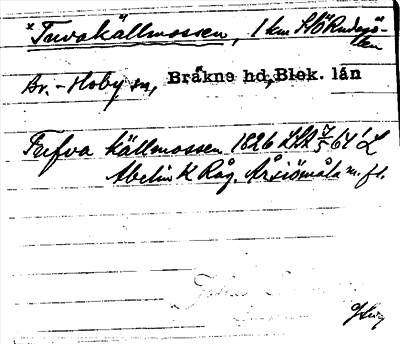 * Tuvakällmossen, 1 km SSÖ Rudesjö-
tten
Br.-Hoby sn, Bräkne hd, Blek. län
Tufva källmossen 1826 LSA 7/5 64' L
Abelin K Råg. Årsiömåla m. fl.